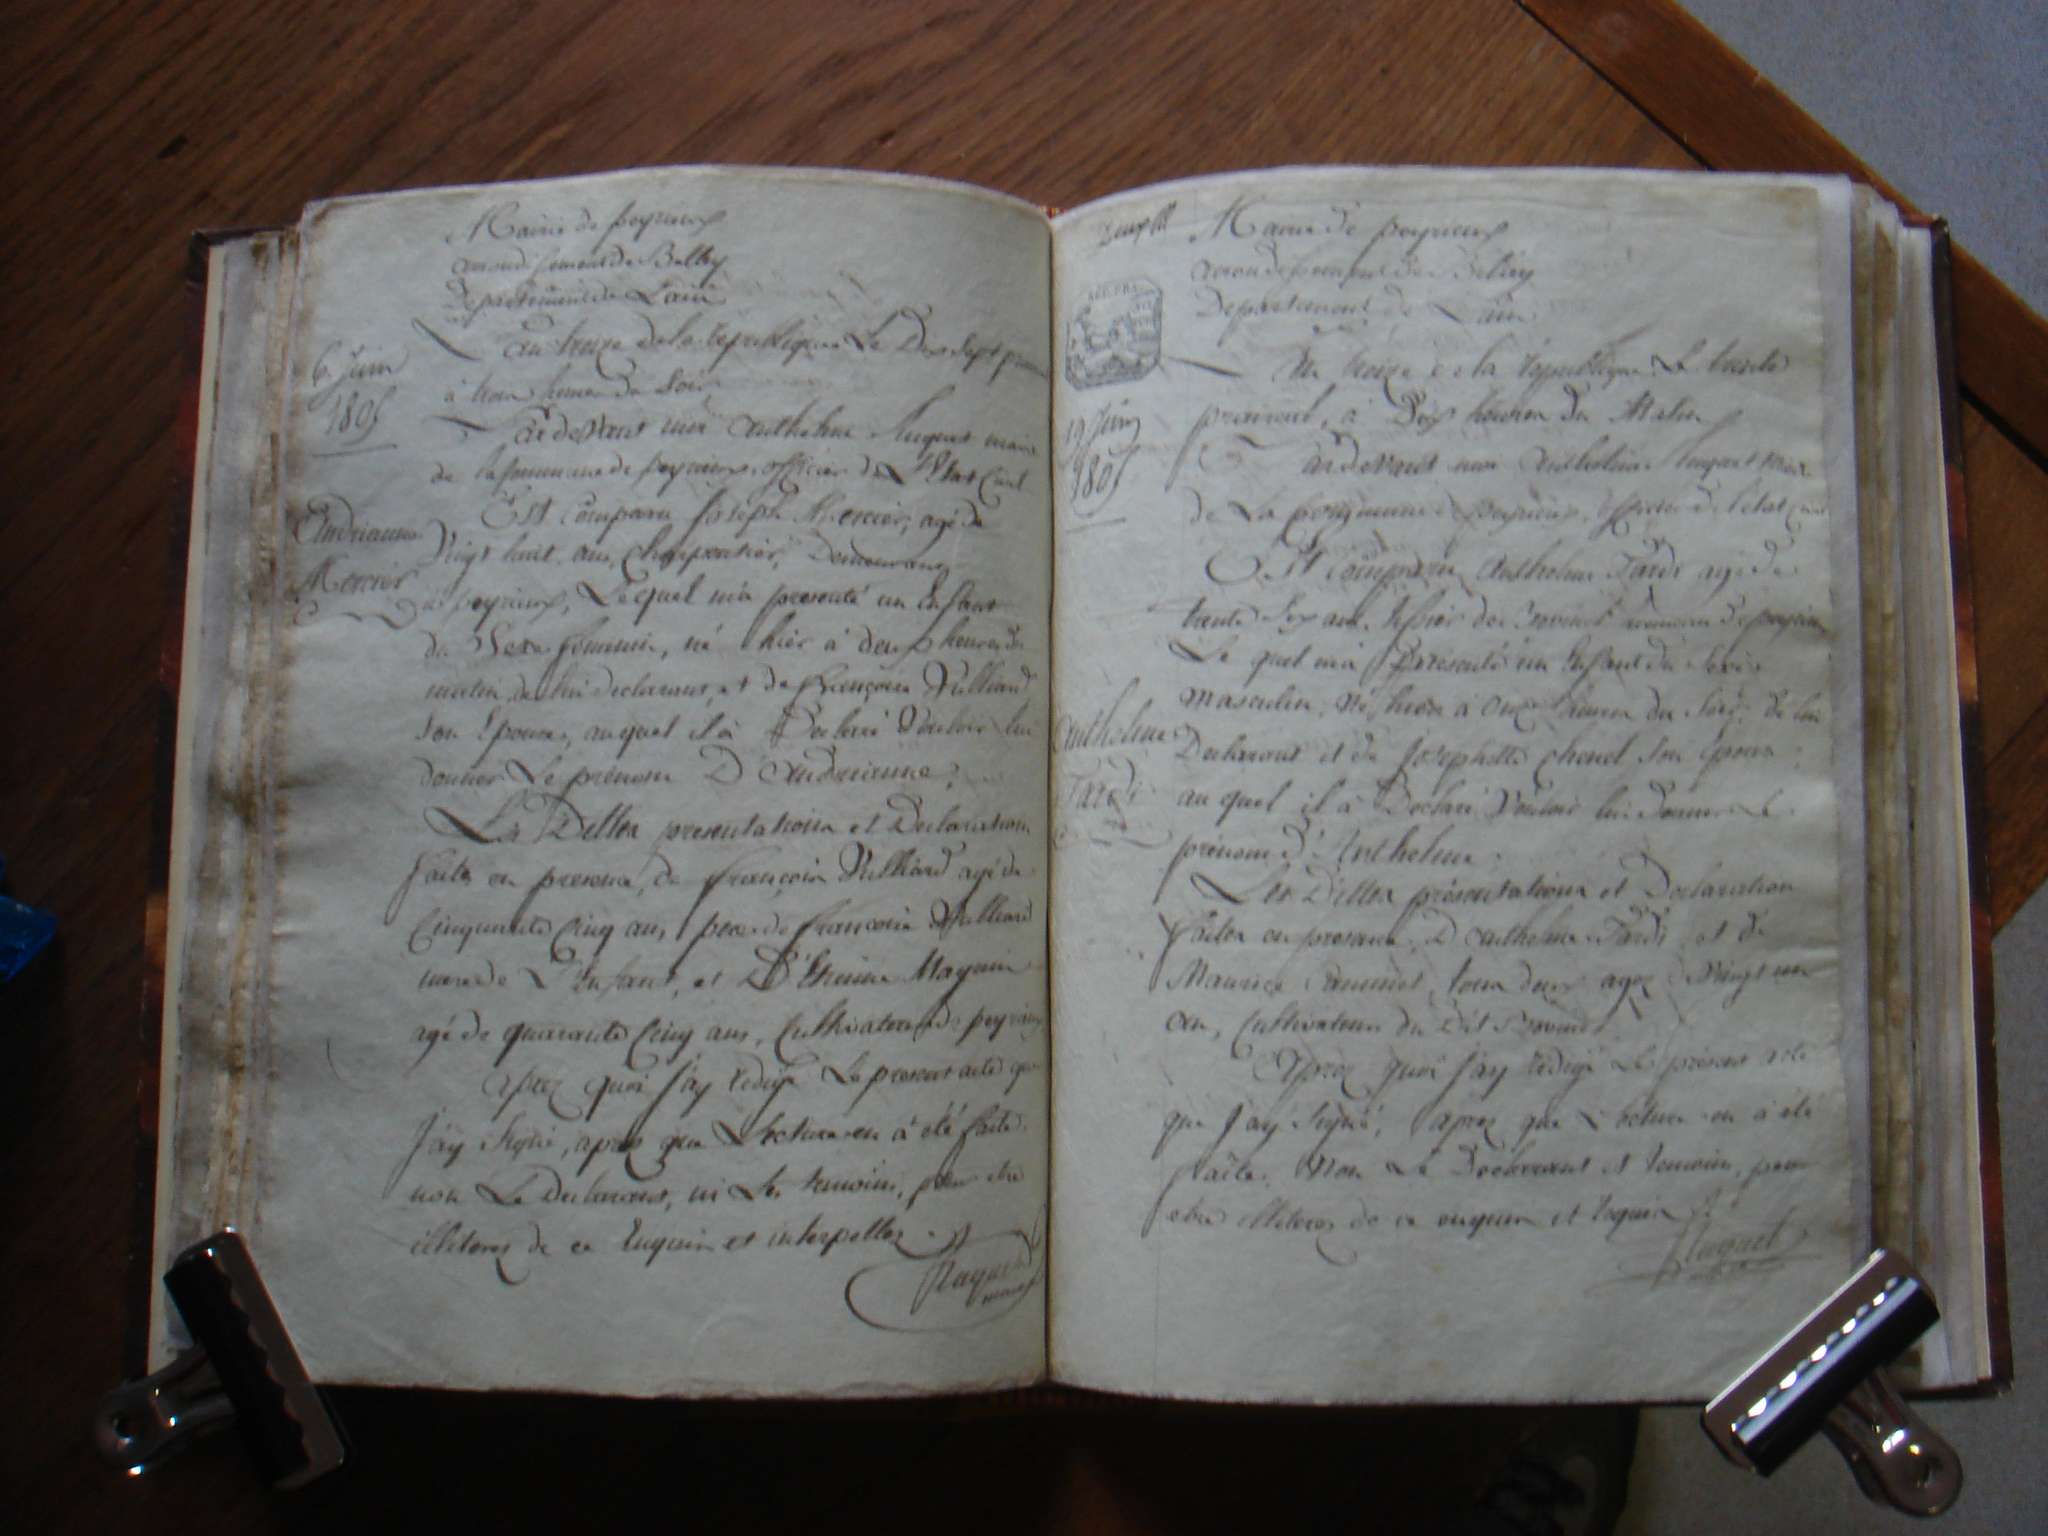 Mairie de peyrieux
arrondissement de Belley
Departement de Lain
6. Juin
1805
an treize de la republique Le Dix sept prairial
à trois heures du Soir
Par devant moi Anthelme Luquet maire
de la commune de peyrieux, officier de l'Etat Civil
Est Comparu Joseph Mercier, agé de
Andrianne
Mercier
Vingt huit ans, Charpentier, Demeurant
à peyrieux, Lequel m'a presenté un Enfant
du Sexe feminin, né hier à deux heures du
matin, de lui declarant, et de Françoise Vulliard
Son Epouse, auquel il à Declaré Vouloir lui
donner Le prénom D'Andrianne.
Les Dittes presentations et Declaration
faites en presence, de François Vulliard agé de
Cinquante Cinq ans, pere de Françoise Vulliard
mere de L'Enfant, et D'Etienne Magnin
agé de quarante Cinq ans, Cultivateurs de peyrieux
Après quoi J'ay redigé Le present acte que
J'ay Signé, après que Lecture en à été faite
non Le Declarant, ni Les temoins, pour etre
illiterez de ce Enquis et interpellez.
Luquet
maire
Mairie de peyrieux
arrondissement de Belley
Departement de Lain
19 Juin
1805
An treize de la republique Le trente
prairial, à Dix heures du Matin
Par devant moi Anthelme Luquet Maire
de La Commune de peyrieux, officier de l'etat Civil
Est Comparu Anthelme Tardi agé de
trente Six ans, tissier de commune de peyrieux
Le quel m'a Presenté un Enfant du Sexe
masculin, Né hier à Onze heures du Soir, de lui
Anthelme
Tardi
Declarant et de Josephette Son Epouse
au quel il à Declaré Vouloir lui Donner Le
prénom d'Anthelme.
Les Dittes présentations et Declaration
faites en presence, D'Anthelme Tardi et de
Maurice tous deux agez de Vingt un
an, Cultivateurs du Dit
Après quoi J'ay redigé Le présent acte
que J'ay Signé, après que Lecture en à été
faite, Non Le Declarant et temoins, pour
etre illiterez de ce enquis et requis
Luquet